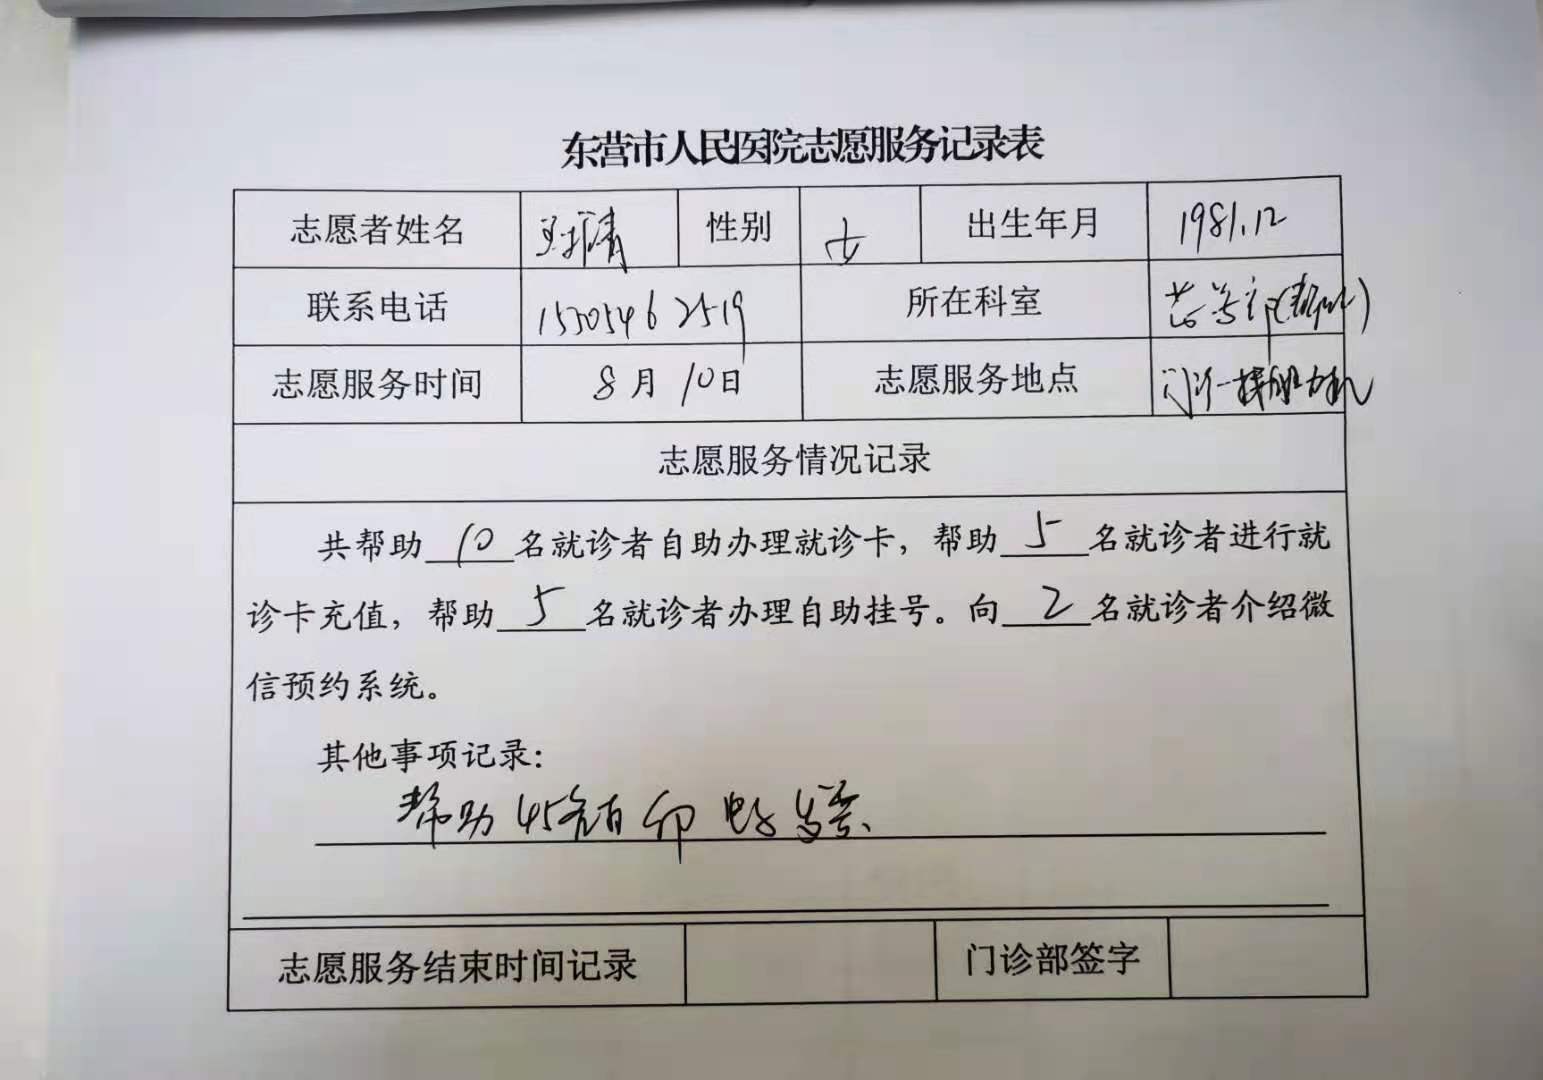 东营市人民医院志愿服务记录表
志愿者姓名 性别 女 出生年月 1981.12
联系电话 15305462519 所在科室
志愿服务时间 8月10日 志愿服务地点 门诊一楼自助机
志愿服务情况记录
共帮助10名就诊者自助办理就诊卡，帮助5名就诊者进行就
诊卡充值，帮助5名就诊者办理自助挂号。向2名就诊者介绍微
信预约系统。
其他事项记录：
帮助45名自印电子发票、
志愿服务结束时间记录 门诊部签字